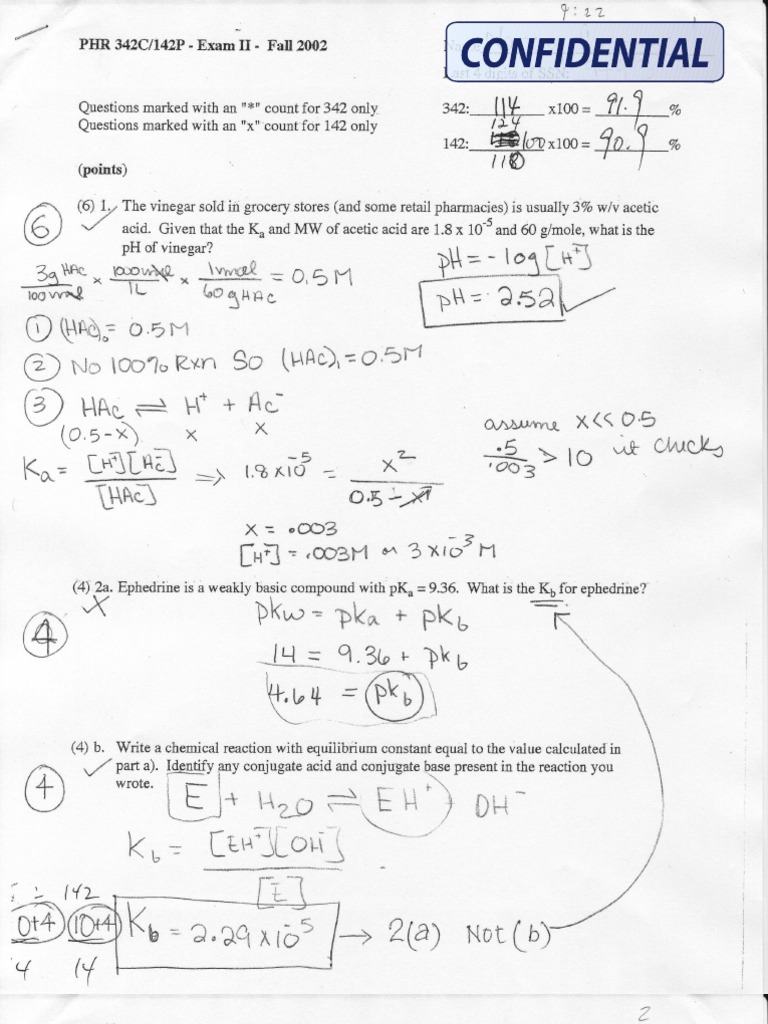 9:22
PHR 342C/142P - Exam II - Fall 2002
CONFIDENTIAL
Questions marked with an "*" count for 342 only
Questions marked with an "x" count for 142 only
342: 114 x100 = 91.9 %
124
142: 100 x100 = 90.9 %
110
(points)
6
(6) 1. The vinegar sold in grocery stores (and some retail pharmacies) is usually 3% w/v acetic
acid. Given that the Ka and MW of acetic acid are 1.8 x 10⁻⁵ and 60 g/mole, what is the
pH of vinegar?
pH = - log [H⁺]
3g HAc / 100 mL × 1000 mL / 1L × 1 mol / 60 g HAc = 0.5 M
pH = 2.52
① (HAc)₀ = 0.5 M
② No 100% Rxn So (HAc)₁ = 0.5 M
③ HAc ⇌ H⁺ + Ac⁻
(0.5-x) x x
assume x << 0.5
.5 / .003 > 10 it checks
Ka = [H⁺][Ac⁻] / [HAc] ⇒ 1.8 x 10⁻⁵ = x² / 0.5 - x
x = .003
[H⁺] = .003M or 3 x 10⁻³ M
(4) 2a. Ephedrine is a weakly basic compound with pKa = 9.36. What is the Kb for ephedrine?
4
pKw = pKa + pKb
14 = 9.36 + pKb
4.64 = pKb
(4) b. Write a chemical reaction with equilibrium constant equal to the value calculated in
part a). Identify any conjugate acid and conjugate base present in the reaction you
wrote.
4
E + H₂O ⇌ EH⁺ + OH⁻
Kb = [EH⁺][OH⁻] / [E]
142
0+4 10+4
4 14
Kb = 2.29 x 10⁻⁵ → 2(a) Not (b)
2